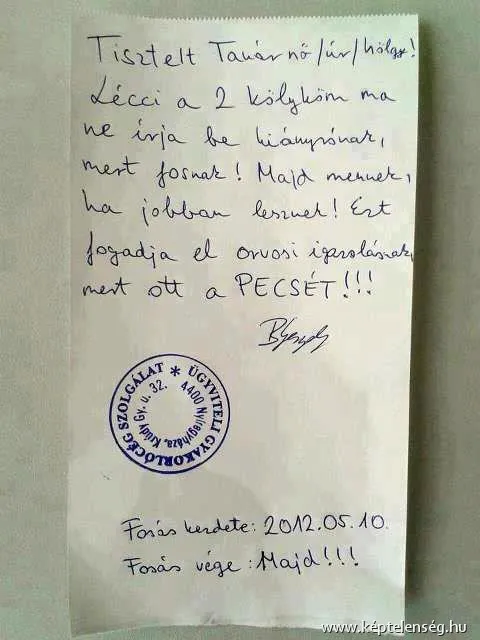 Tisztelt Tanárnő/úr/hölgy!
Lécci a 2 kölyköm ma
ne írja be hiányzónak,
mert fosnak! Majd mennek,
ha jobban lesznek! Ezt
fogadja el orvosi igazolásnak,
mert ott a PECSÉT!!!
ÜGYVITELI GYAKORLÓCÉG SZOLGÁLAT *
4400 Nyíregyháza, Krúdy Gy. u. 32.
Fosás kezdete: 2012.05.10.
Fosás vége: Majd!!!
www.képtelenség.hu